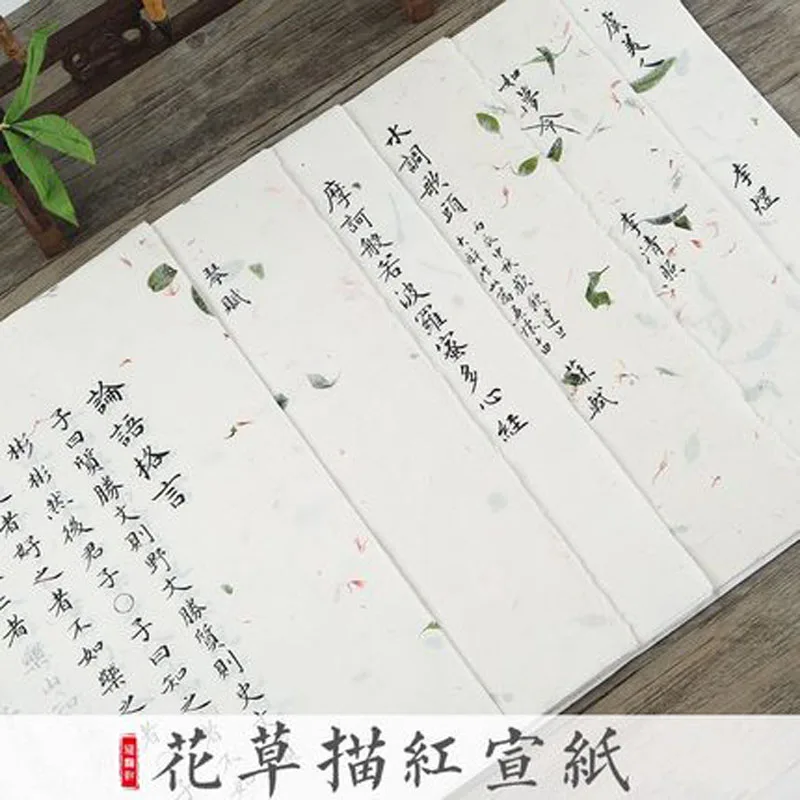 虞美人
李煜
如夢令
李清照
水調歌頭
丙辰中秋歡飲達旦
大醉作此篇兼懷子由
蘇軾
摩訶般若波羅蜜多心経
琴賦
論語格言
子曰質勝文則野文勝質則史
彬彬然後君子〇子曰知之
者好之者不如樂之
花草描紅宣紙